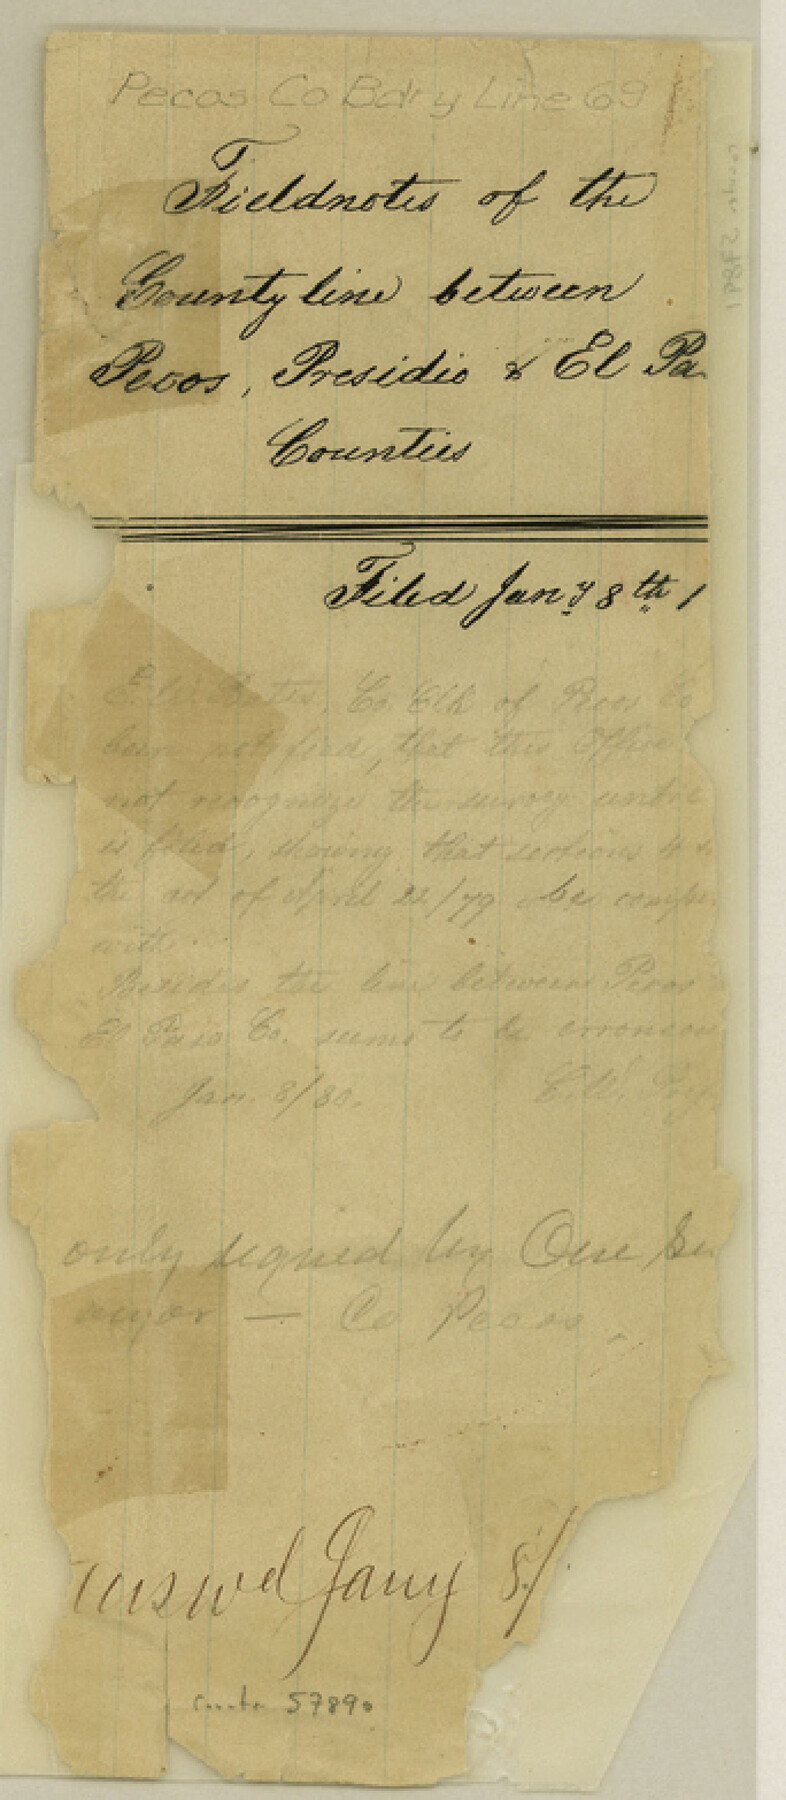 Pecos Co Bdry Line 69
Fieldnotes of the
County line between
Pecos, Presidio & El Pa
Counties
Filed Jany 8th 1
Co. Clk of Pecos Co
been notified, that this Office
not recognize the survey until
is filed, showing that sections 4 &
the act of April 22/79 be
with.
Besides the line between Pecos
El Paso Co. seems to be erroneou
Jan. 8/80.
only signed by One Su
veyor — Co Pecos
answd Jany 8/
counter 57890
counter 57891